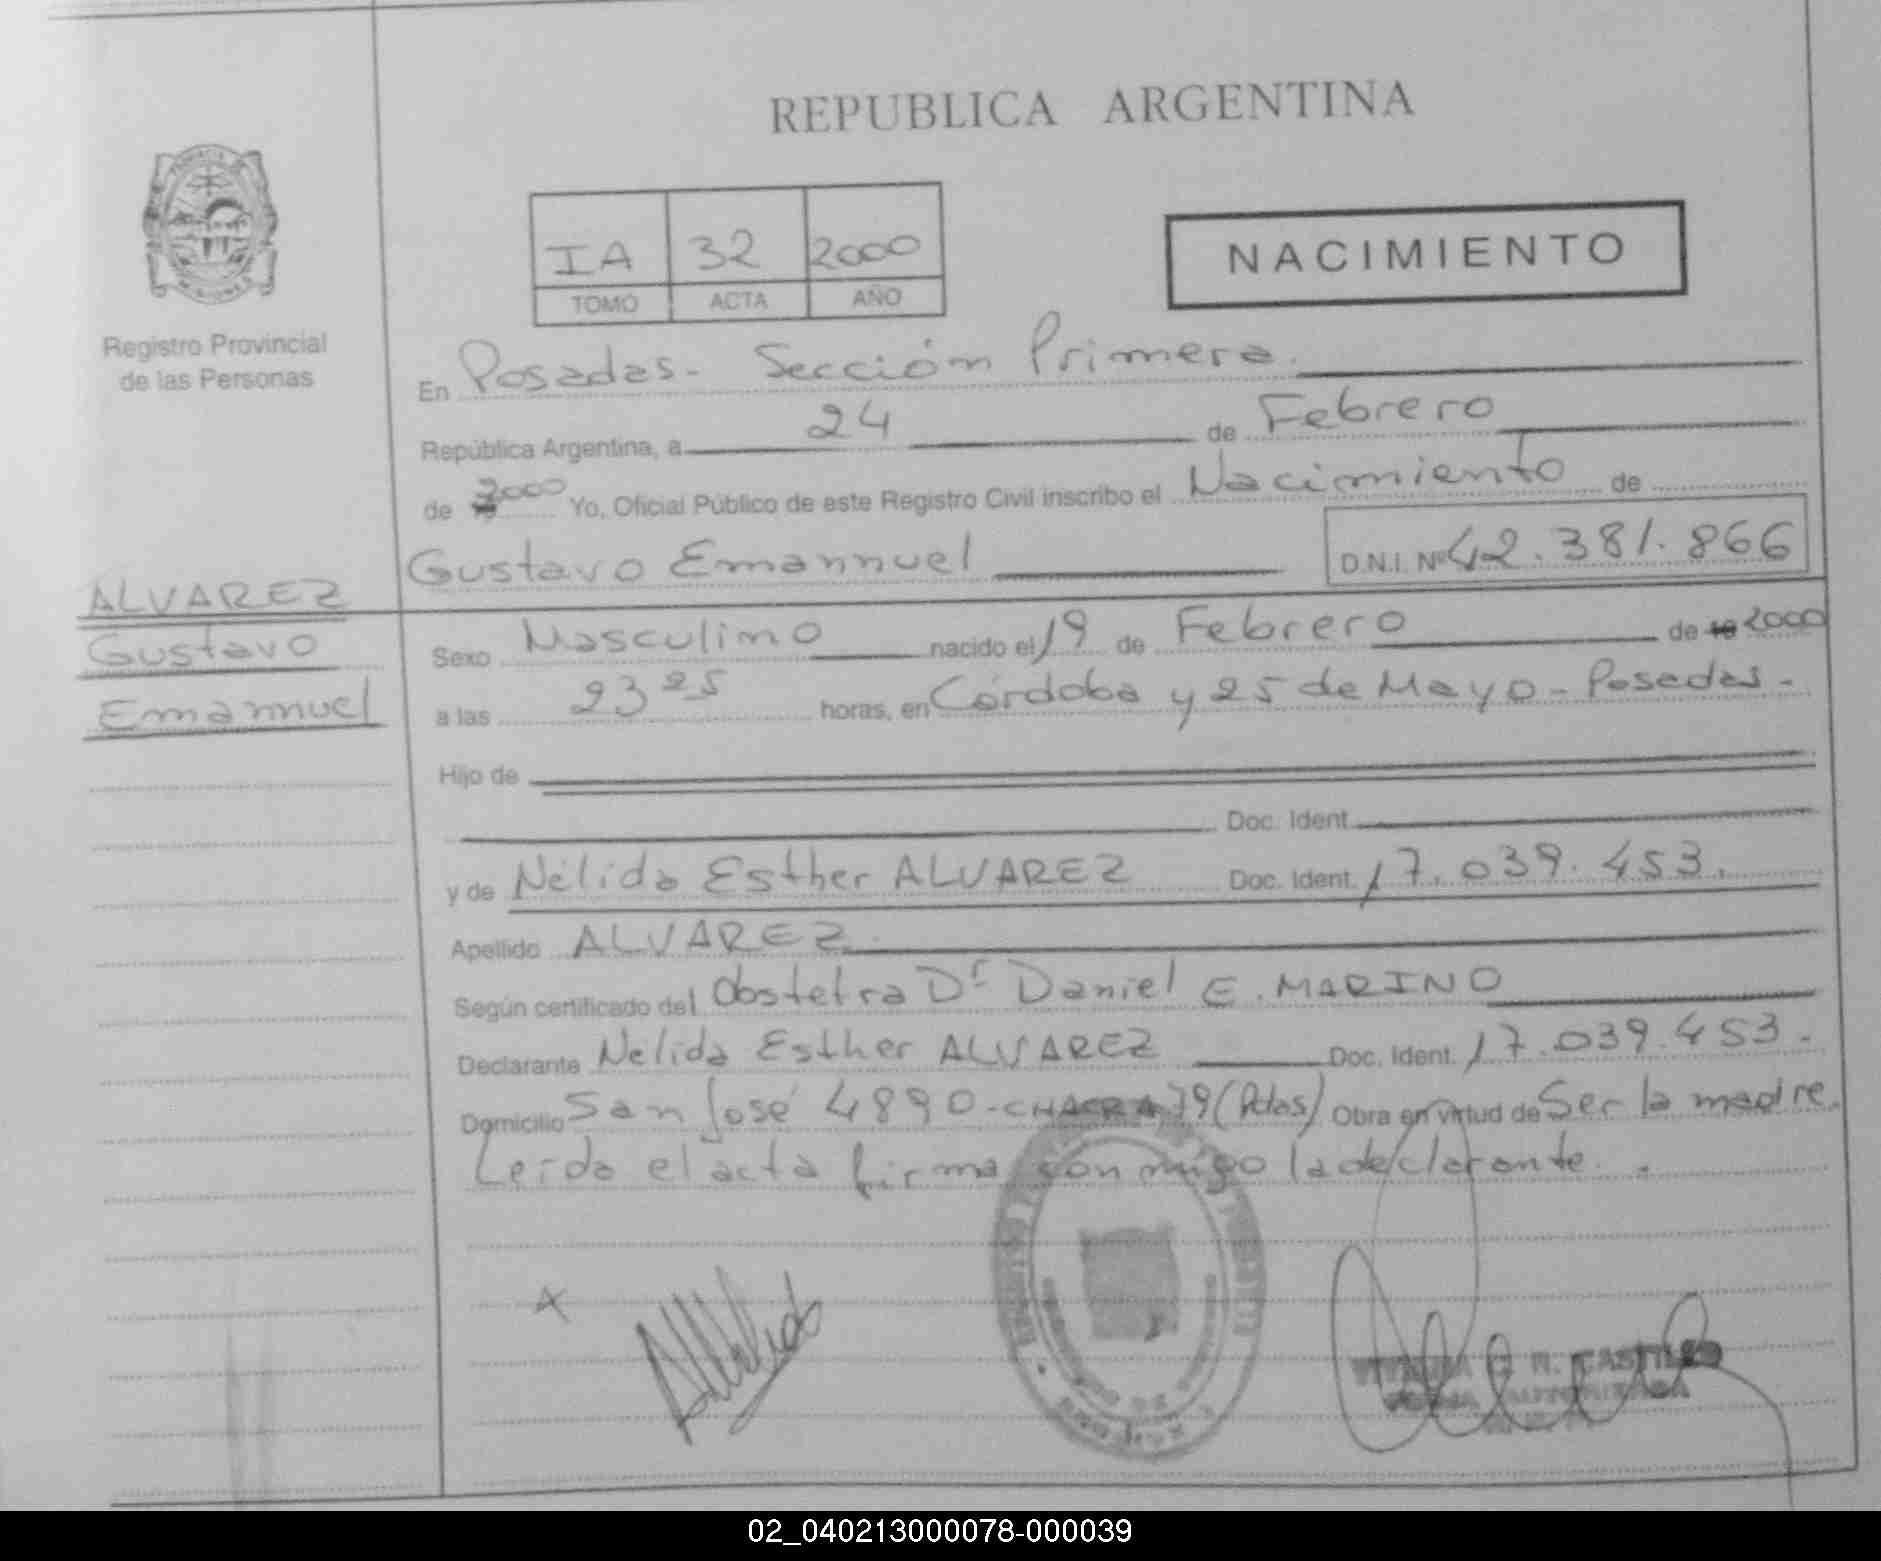 REPUBLICA ARGENTINA
IA 32 2000
TOMO ACTA AÑO
NACIMIENTO
Registro Provincial
de las Personas
En Posadas - Sección Primera.
República Argentina, a 24 de Febrero
de 2000 Yo, Oficial Público de este Registro Civil inscribo el Nacimiento de
Gustavo Emannuel D.N.I. Nº 42.381.866
ALVAREZ
Gustavo
Emannuel
Sexo Masculino nacido el 19 de Febrero de 2000
a las 23 25 horas, en Córdoba y 25 de Mayo - Posadas -
Hijo de
Doc. Ident.
y de Nélida Esther ALVAREZ Doc. Ident. 17.039.453.
Apellido ALVAREZ
Según certificado del Obstetra Dr Daniel E. MARINO
Declarante Nelida Esther ALVAREZ Doc. Ident. 17.039.453.
Domicilio San José 4890 - CHACRA 79 (Pdas) Obra en virtud de Ser la madre.
Leída el acta firma conmigo la declarante.
R. CASTILLO
FIRMA AUTORIZADA
02_040213000078-000039